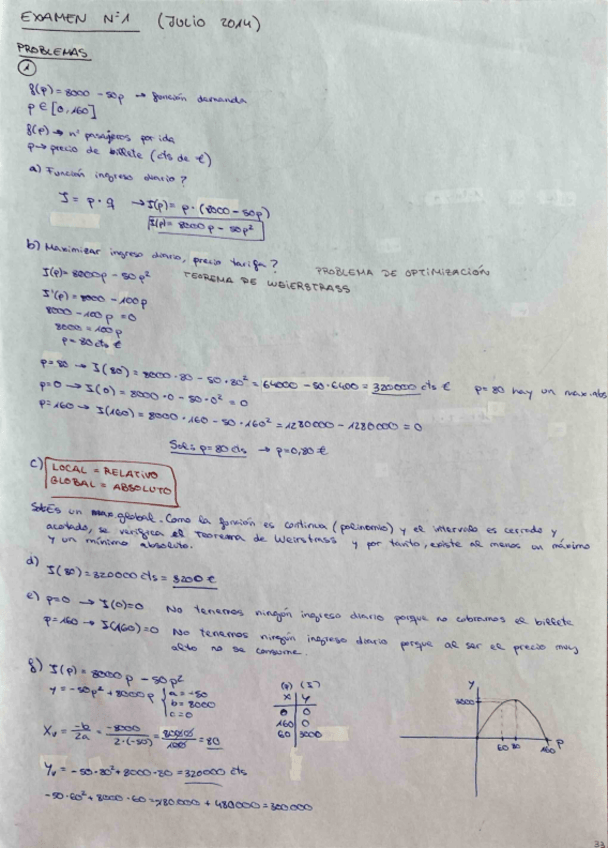 EXAMEN Nº1 (JULIO 2014)
PROBLEMAS
1
q(p) = 8000 - 50p → función demanda
p ∈ [0,160]
q(p) → nº pasajeros por ida
p → precio de billete (cts de €)
a) Función ingreso diario?
I = p · q → I(p) = p · (8000 - 50p)
I(p) = 8000p - 50p²
b) Maximizar ingreso diario, precio tarifa?
PROBLEMA DE OPTIMIZACIÓN
I(p) = 8000p - 50p² TEOREMA DE WEIERSTRASS
I'(p) = 8000 - 100p
8000 - 100p = 0
8000 = 100p
p = 80 cts €
p = 80 → I(80) = 8000 · 80 - 50 · 80² = 64000 - 50 · 6400 = 320000 cts € p = 80 hay un max.abs
p = 0 → I(0) = 8000 · 0 - 50 · 0² = 0
p = 160 → I(160) = 8000 · 160 - 50 · 160² = 1280000 - 1280000 = 0
Sol: p = 80 cts → p = 0,80 €
c) LOCAL = RELATIVO
GLOBAL = ABSOLUTO
Es un max.global. Como la función es continua (polinomio) y el intervalo es cerrado y
acotado, se verifica el Teorema de Weirstrass y por tanto, existe al menos un máximo
y un mínimo absoluto.
d) I(80) = 320000 cts = 3200 €
e) p = 0 → I(0) = 0 No tenemos ningún ingreso diario porque no cobramos el billete
p = 160 → I(160) = 0 No tenemos ningún ingreso diario porque al ser el precio muy
alto no se consume.
f) I(p) = 8000p - 50p²
y = -50p² + 8000p { a = -50
b = 8000
c = 0
(p) (I)
x y
0 0
160 0
60 3000
Xv = -b/2a = -8000/2·(-50) = 8000/100 = 80
Yv = -50 · 80² + 8000 · 80 = 320000 cts
-50 · 60² + 8000 · 60 = -180.000 + 480000 = 300000
y
60 80 160 p
33